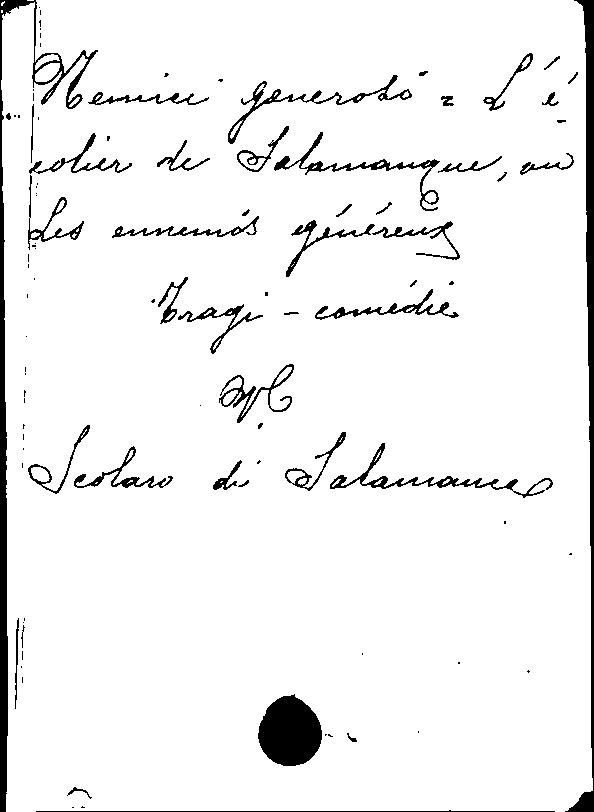 Nemici generosi = L'é-
colier de Salamanque, ou
Les ennemis généreux
Tragi-comédie
V.
Scolaro di Salamanca